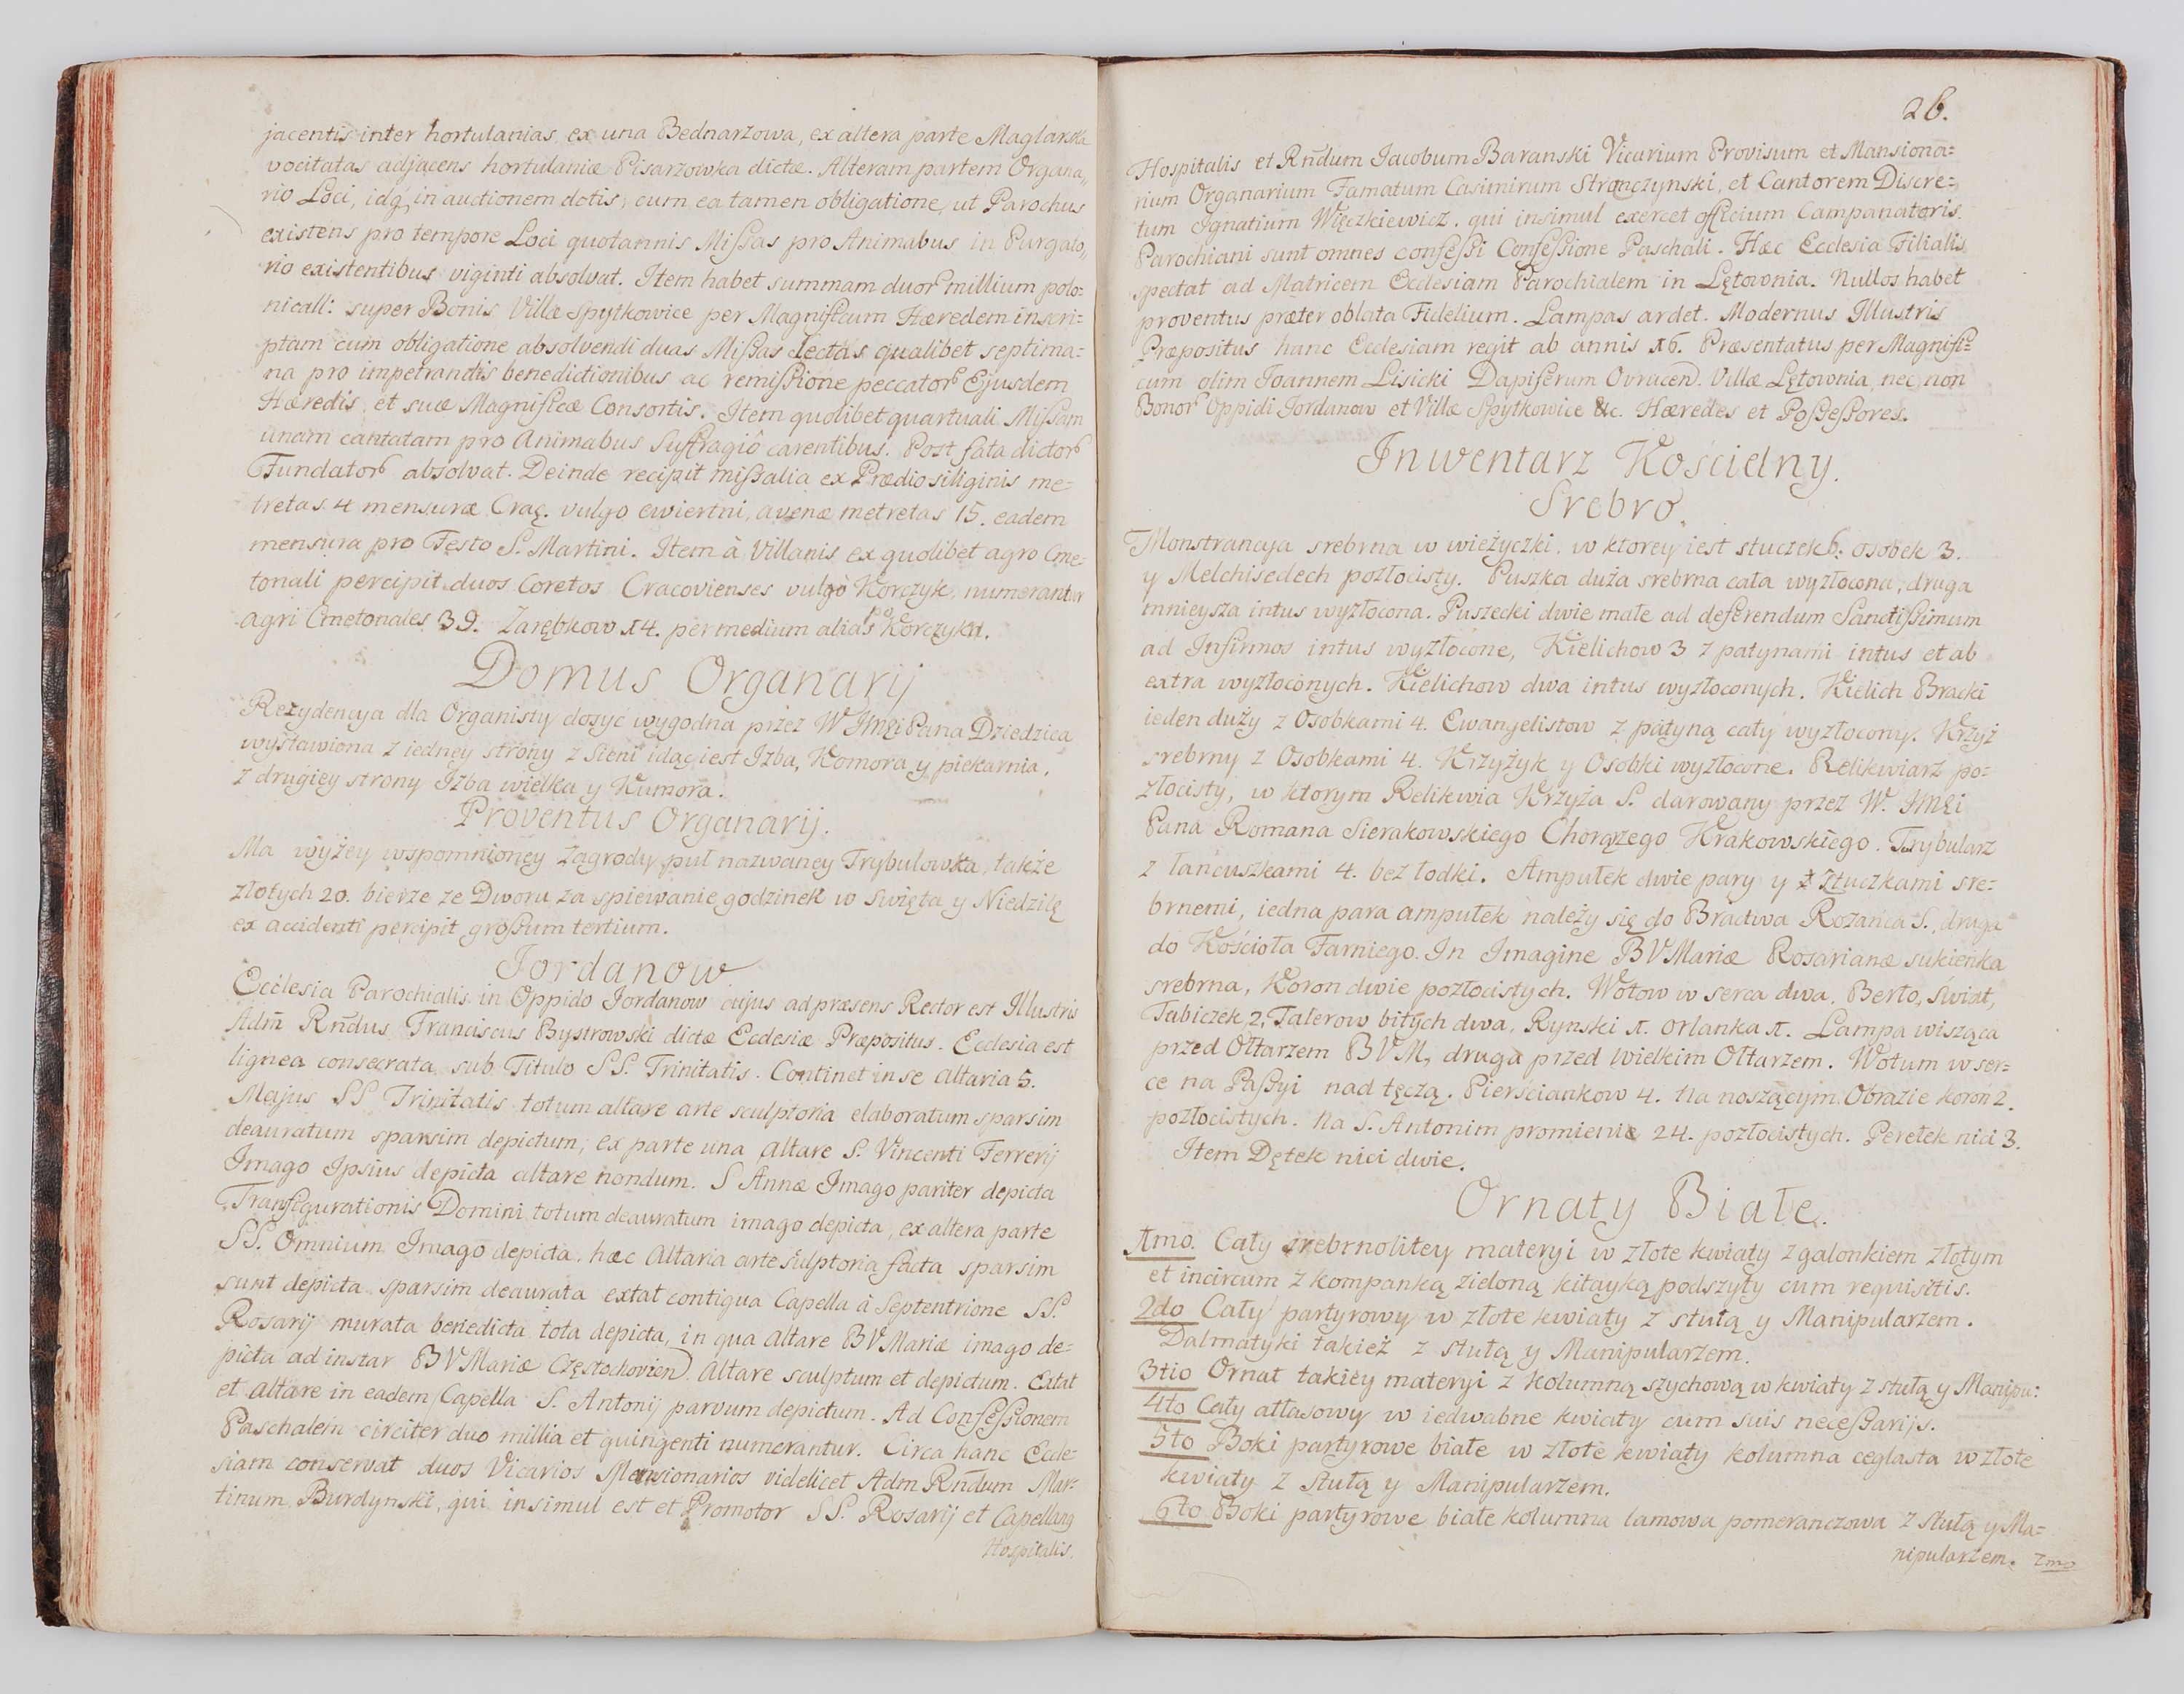 jacentis inter hortulanias ex una Bednarzowa, ex altera parte Maglarska
vocitatas adjacens hortulaniæ Pisarzowka dictæ. Alteram partem Organa„
rio Loci, idq́, in auctionem dotis, cum ea tamen obligatione, ut Parochus
existens pro tempore Loci quotannis Mißas pro Animabus in Purgato„
rio existentibus viginti absolvat. Item habet summam duor millium polo=
nicall: super Bonis Villæ Spytkowice per Magnificum Hæredem inscri=
ptam cum obligatione absolvendi duas Mißas lectas qualibet septima=
na pro impetrandis benedictionibus ac remißione peccator Ejusdem
Hæredis, et suæ Magnificæ Consortis. Item quolibet quartuali Mißam
unam cantatam pro Animabus Suffragiô carentibus. Post fata dictor
Fundator absolvat. Deinde recipit mißalia ex Prædio siliginis me=
tretas 4 mensuræ Crac. vulgo cwiertni, avenæ metretas 15. eadem
mensura pro Festo S. Martini. Item à Villanis ex quolibet agro Cme=
tonali percipit duos Coretos Cracovienses vulgò Korczyk, numerantur
agri Cmetonales 39. Zarębkow 14. per medium alias po Korczyku.
Domus Organarij
Rezydencya dla Organisty dosyć wygodna przez W JMCi Pana Dziedzica
wystawiona z iedney strony z Sieni idąc iest Izba, Komora y piekarnia,
z drugiey strony Izba wielka y Kumora.
Proventus Organarij.
Ma wyżey wspomnioney Zagrody puł nazwaney Trybulowka, także
złotych 20. bierze ze Dworu za spiewanie godzinek w Swięta y Niedzilę
ex accidenti percipit großum tertium.
Jordanow
Ecclesia Parochialis in Oppido Jordanow cujus ad præsens Rector est Illustris
Adm̃ Rñdus Franciscus Bystrowski dictæ Ecclesiæ Præpositus. Ecclesia est
lignea consecrata sub Titulo SS. Trinitatis. Continet in se Altaria 5.
Majus SS Trinitatis totum altare arte sculptoria elaboratum sparsim
deauratum sparsim depictum, ex parte una Altare S. Vincenti Ferrerij
Imago Ipsius depicta altare nondum. S Annæ Imago pariter depicta
Transfigurationis Domini totum deauratum imago depicta, ex altera parte
SS. Omnium Imago depicta. hæc Altaria arte sulptoria facta sparsim
sunt depicta sparsim deaurata extat contigua Capella à Septentrione SS.
Rosarij murata benedicta tota depicta, in qua Altare BVMariæ imago de=
picta ad instar BVMariæ Częstochovien). Altare sculptum et depictum. Extat
et Altare in eadem Capella S. Antonij parvum depictum. Ad Confeßionem
Paschalem circiter duo millia et quingenti numerantur. Circa hanc Eccle=
siam conservat duos Vicarios Mansionarios videlicet Adm Rñdum Mar=
tinum Burdynski, qui insimul est et Promotor SS. Rosarij et Capellang
Hospitalis.
26.
Hospitalis et Rñdum Jacobum Baranski Vicarium Provisum et Mansiona=
rium Organarium Famatum Casimirum Stronczynski, et Cantorem Discre=
tum Ignatium Więczkiewicz, qui insimul exercet officium Campanatoris.
Parochiani sunt omnes confeßi Confeßione Paschali. Hæc Ecclesia Filialis
spectat ad Matricem Ecclesiam Parochialem in Łętownia. Nullos habet
proventus præter oblata Fidelium. Lampas ardet. Modernus Illustris
Præpositus hanc Ecclesiam regit ab annis 16. Præsentatus per Magnifi=
cum olim Joannem Lisicki Dapiferum Ovrucen). Villæ Łętownia, nec non
Bonor Oppidi Jordanow et Villæ Spytkowice &c. Hæredes et Poßeßores.
Inwentarz Kościelny.
Srebro.
Monstrancya srebrna w wieżyczki, w ktorey iest stuczek 6. osobek 3.
y Melchisedech pozłocisty. Puszka duża srebrna cała wyzłocona, druga
mnieysza intus wyzłocona. Puszecki dwie małe ad deferendum Sanctißimum
ad Infirmos intus wyzłocone, Kielichow 3 z patynami intus et ab
extra wyzłoconych. Kielichow dwa intus wyzłoconych. Kielich Bracki
ieden duży z Osobkami 4. Ewangelistow z patyną cały wyzłocony. Krzyż
srebrny z Osobkami 4. Krzyżyk y Osobki wyzłocone. Relikwiarz po=
złocisty, w ktorym Relikwia Krzyża S. darowany przez W. JMCi
Pana Romana Sierakowskiego Chorązego Krakowskiego. Trybularz
z łancuszkami 4. bez łodki. Ampułek dwie pary y z Ztuczkami sre=
brnemi, iedna para ampułek należy się do Bractwa Rozańca S., druga
do Kościoła Farniego. In Imagine BVMariæ Rosarianæ sukienka
srebrna, Koron dwie pozłocistych. Wotow w serca dwa, Berło, Świat,
Tabiczek 2, Talerow bitych dwa, Rynski 1. Orlanka 1. Lampa wisząca
przed Ołtarzem BVM, druga przed Wielkim Ołtarzem. Wotum w ser=
ce na Paßyi nad tęczą. Pierściankow 4. Na noszącym Obrazie koron 2.
pozłocistych. Na S. Antonim promienie 24. pozłocistych. Perełek nici 3.
Item Dętek nici dwie.
Ornaty Białe.
1mo. Cały srebrnolitey materyi w złote kwiaty z galonkiem złotym
et incircum z kompanką zieloną kitayką podszyty cum requisitis.
2do Cały partyrowy w złote kwiaty z stułą y Manipularzem.
Dalmatyki takież z stułą y Manipularzem.
3tio Ornat takiey materyi z kolumną szychową w kwiaty z stułą y Manipu:
4to Cały atłasowy w iedwabne kwiaty cum suis neceßarijs.
5to Boki partyrowe białe w złote kwiaty kolumna ceglasta w złote
kwiaty z stułą y Manipularzem.
6to Boki partyrowe białe kolumna lamowa pomeranczowa z stułą y Ma=
nipularzem. 7mo